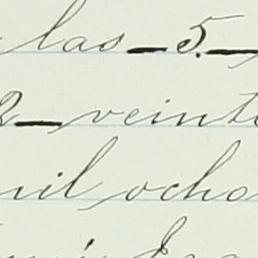 las 5.
2 veint
mil ocho